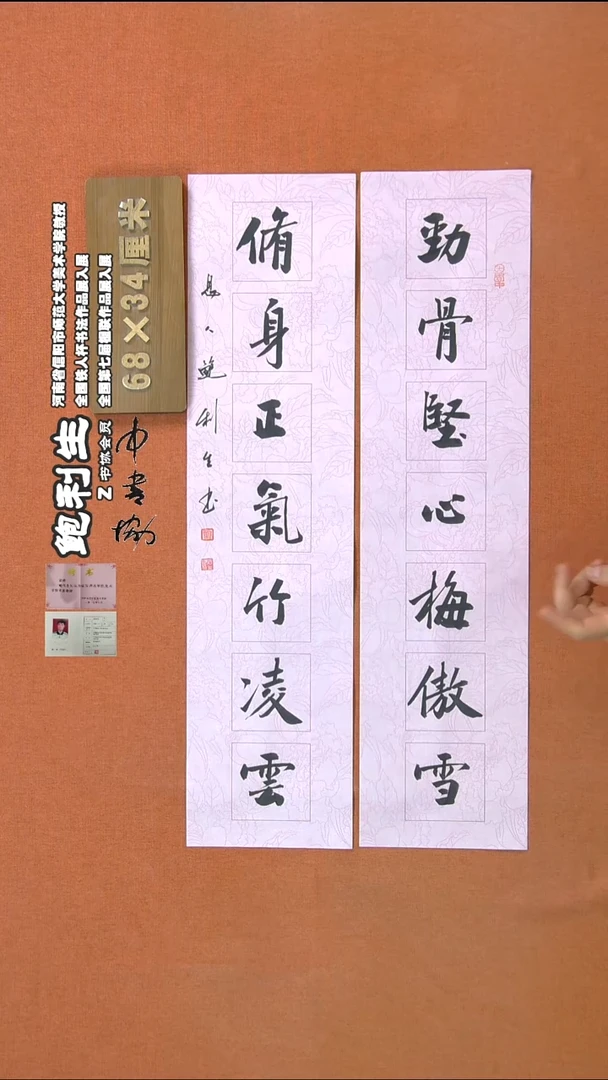 勁骨堅心梅傲雪
脩身正氣竹凌雲
鲍利生书
68×34厘米
河南省信阳市师范大学美术学院教授
全国铁人杯书法作品展入展
全国第七届楹联作品展入展
鲍利生
书协会员
中书协